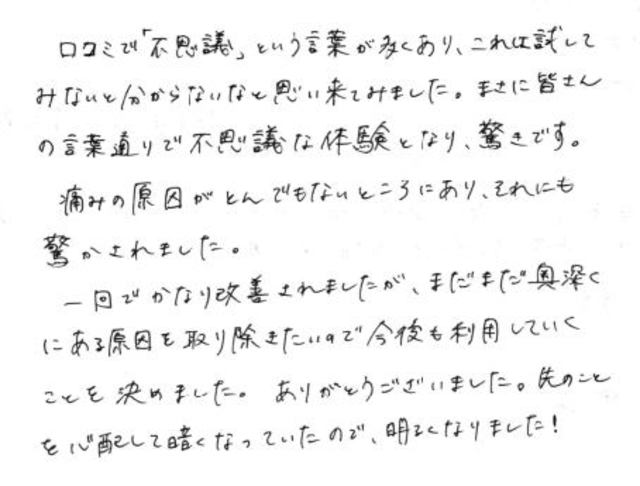 口コミで「不思議」という言葉が多くあり、これは試して
みないと分からないなと思い来てみました。まさに皆さん
の言葉通りで不思議な体験となり、驚きです。
痛みの原因がとんでもないところにあり、それにも
驚かされました。
一回でかなり改善されましたが、まだまだ奥深く
にある原因を取り除きたいので今後も利用していく
ことを決めました。ありがとうございました。先のこと
を心配して暗くなっていたので、明るくなりました!